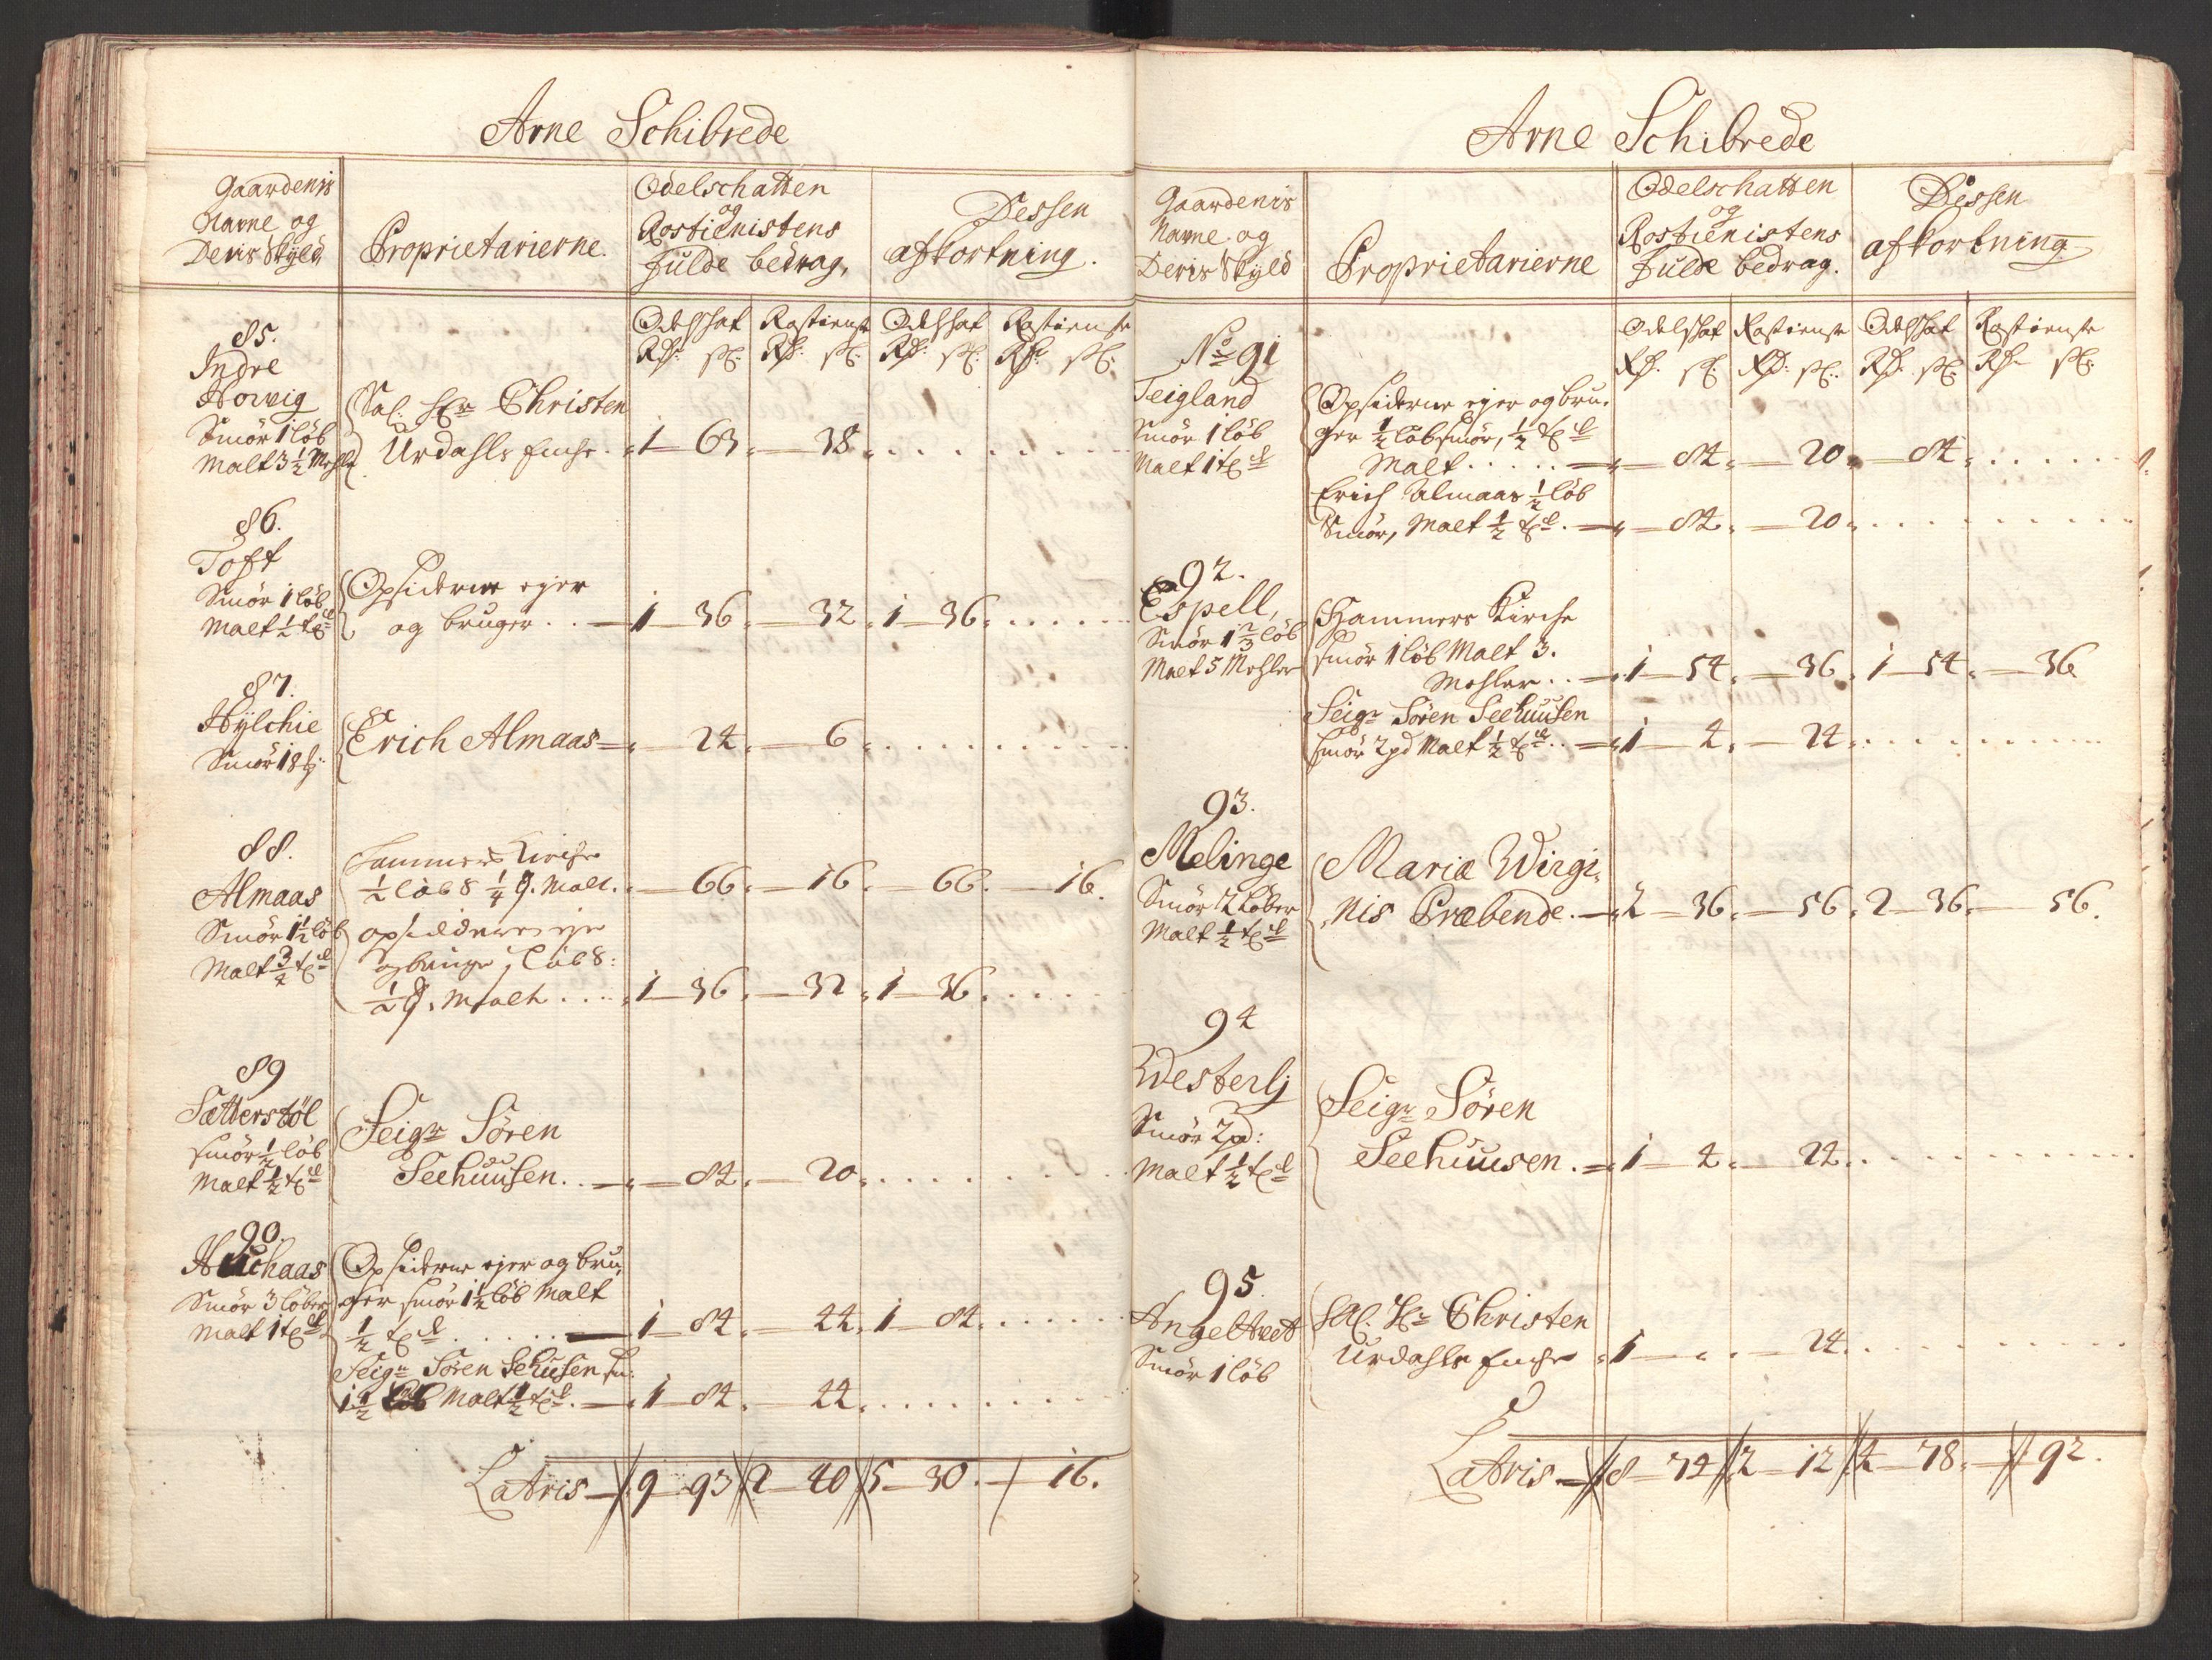 Arne Schibrede
Gaardenis
Navne og
Deris Skyld
Proprietarierne.
Odelschatten
og
Rostienistens
fulde bedrag,
Dessen
afkortning.
Odelschat Rostienst Odelschat Rostienste
Rdr: sk: Rdr: sk: Rdr: sk: Rdr: sk:
85.
Indre
Horvig
Smör 1 löb
Malt 3½ Mehle
Sal. Hr. Christen
Urdahls Enche. 1 - 63. - 38.
86.
Toft
Smör 1 löb
Malt ½ td
Opsiderne ejer
og bruger . . 1 - 36. - 32. 1 - 36.
87.
Hÿlchie
Smör 18 
Erich Almaas - 24. - 6.
88.
Almaas
Smör 1½ löb
Malt ¾ td
Hammers Kirche
½ Löb S ¼ t. Malt. - 66. - 16. - 66. - 16.
opsiddere eje
og bruge 1 Löb S:
½ t. Malt . . . 1 - 36. - 32. 1 - 36.
89
Sætterstöl
smör ½ löb
Malt ½ td
Seigr Sören
Seehuusen. . - 84. - 20.
90.
Smör 3 löber
Malt 1 td
Opsiderne ejer og bru,
ger smör 1½ löb Malt
½ td . . . . 1 - 84. - 44. 1 - 84.
Seigr Sören Sehusen sm:
1½ Löb Malt ½ td. 1 - 84. - 44.
Latris - 9 - 93 2 - 40 5 - 30. - 16.
Arne Schibrede
Gaardenis
Navne og
Deris Skyld
Proprietarierne
Odelschatten
og
Rostienistens
fulde bedrag.
Dessen
afkortning
Odelschat Rostienste Odelschat Rostienste
Rdr. sk: Rdr: sk: Rdr: sk: Rdr sk:
No 91
Teigland
Smör 1 löb
Malt 1 td
Opsiderne ejer og bru,
ger ½ löb smör, ½ td
Malt . . . . . - 84. - 20. - 84.
Erich Almaas ½ löb
Smör, Malt ½ td. - 84. - 20.
92.
Espell,
Smör 1⅔ löb
Malt 5 Mehler
Hammers Kirche
smör 1 löb Malt 3.
Mehler . . 1 - 54. - 36. 1 - 54. - 36
Seigr Sören Seehuusen
smör 2 pd Malt ½ td . . 1 - 4. - 24.
93.
Melinge
Smör 2 Löber
Malt ½ td
Mariæ Wirgi,
nis Præbende. - 2 - 36. - 56. 2 - 36. - 56.
94
Westerlj
Smör 2 pd:
Malt ½ td
Seigr Sören
Seehuusen. 1 - 4. - 24.
95.
Angeltvedt
Smör 1 löb
Sal. Hr. Christen
Urdahls Enche 1 - . - 24.
Latris - 8 - 74 2 - 12 4 - 78. - 92.